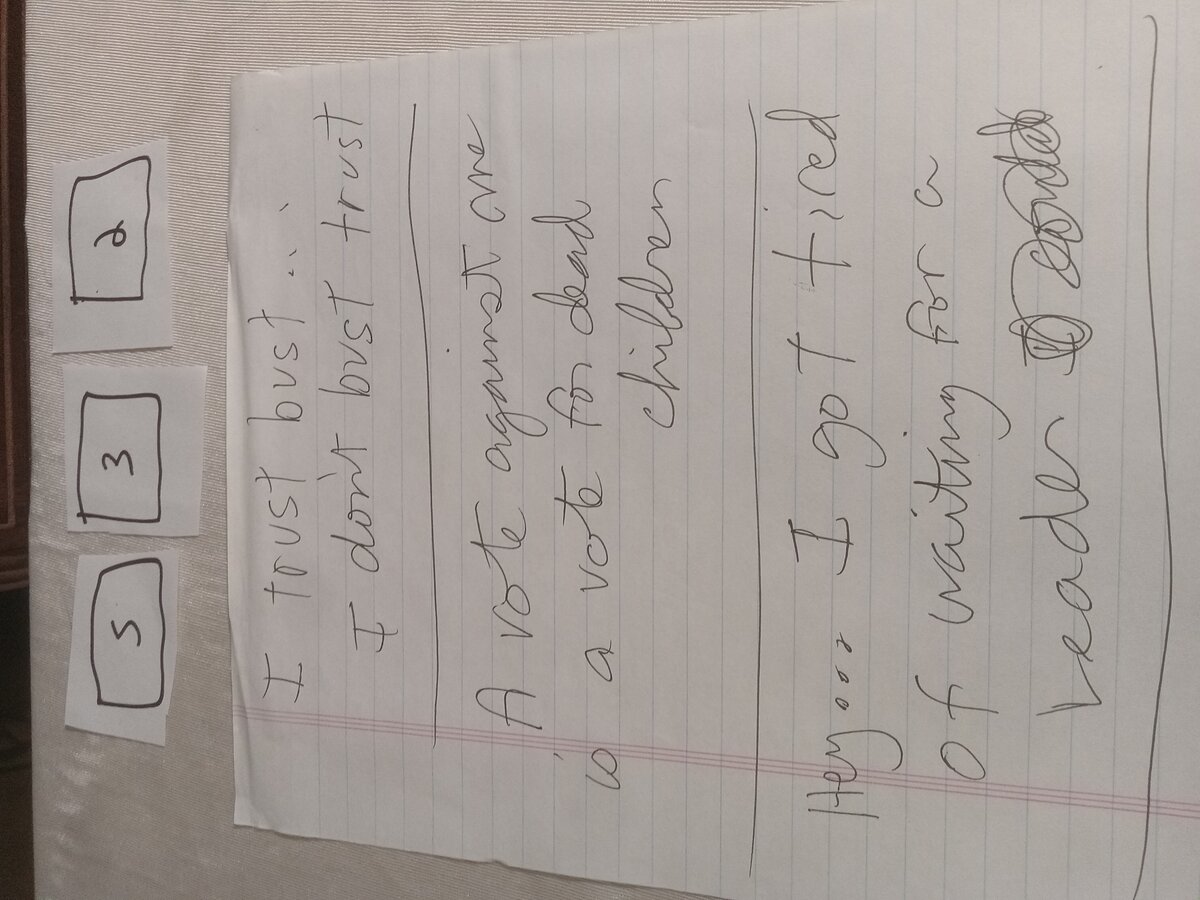 5 3 2
I trust bust...
I don't bust trust
A vote against me
is a vote for dead
children
Hey... I got tired
of waiting for a
Leader